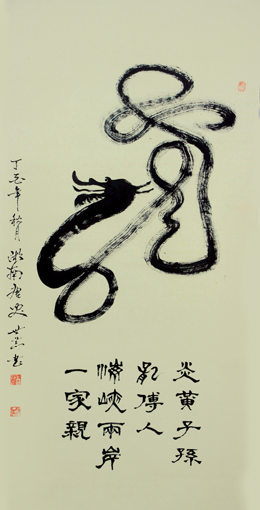 炎黄子孫
龍傳人
海峽兩岸
一家親
丁亥年秋月